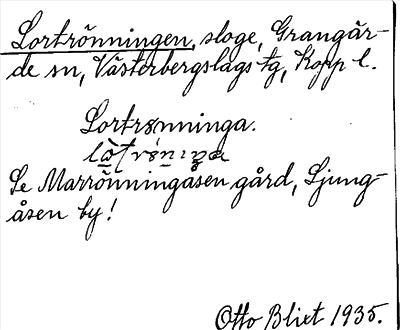 Lortrönningen, sloge, Grangär-
de sn, Västerbergslags tg, Kopp l.
Lortrønninga.
Se Marrönningåsen gård, Ljung-
åsen by!
Otto Blixt 1935.